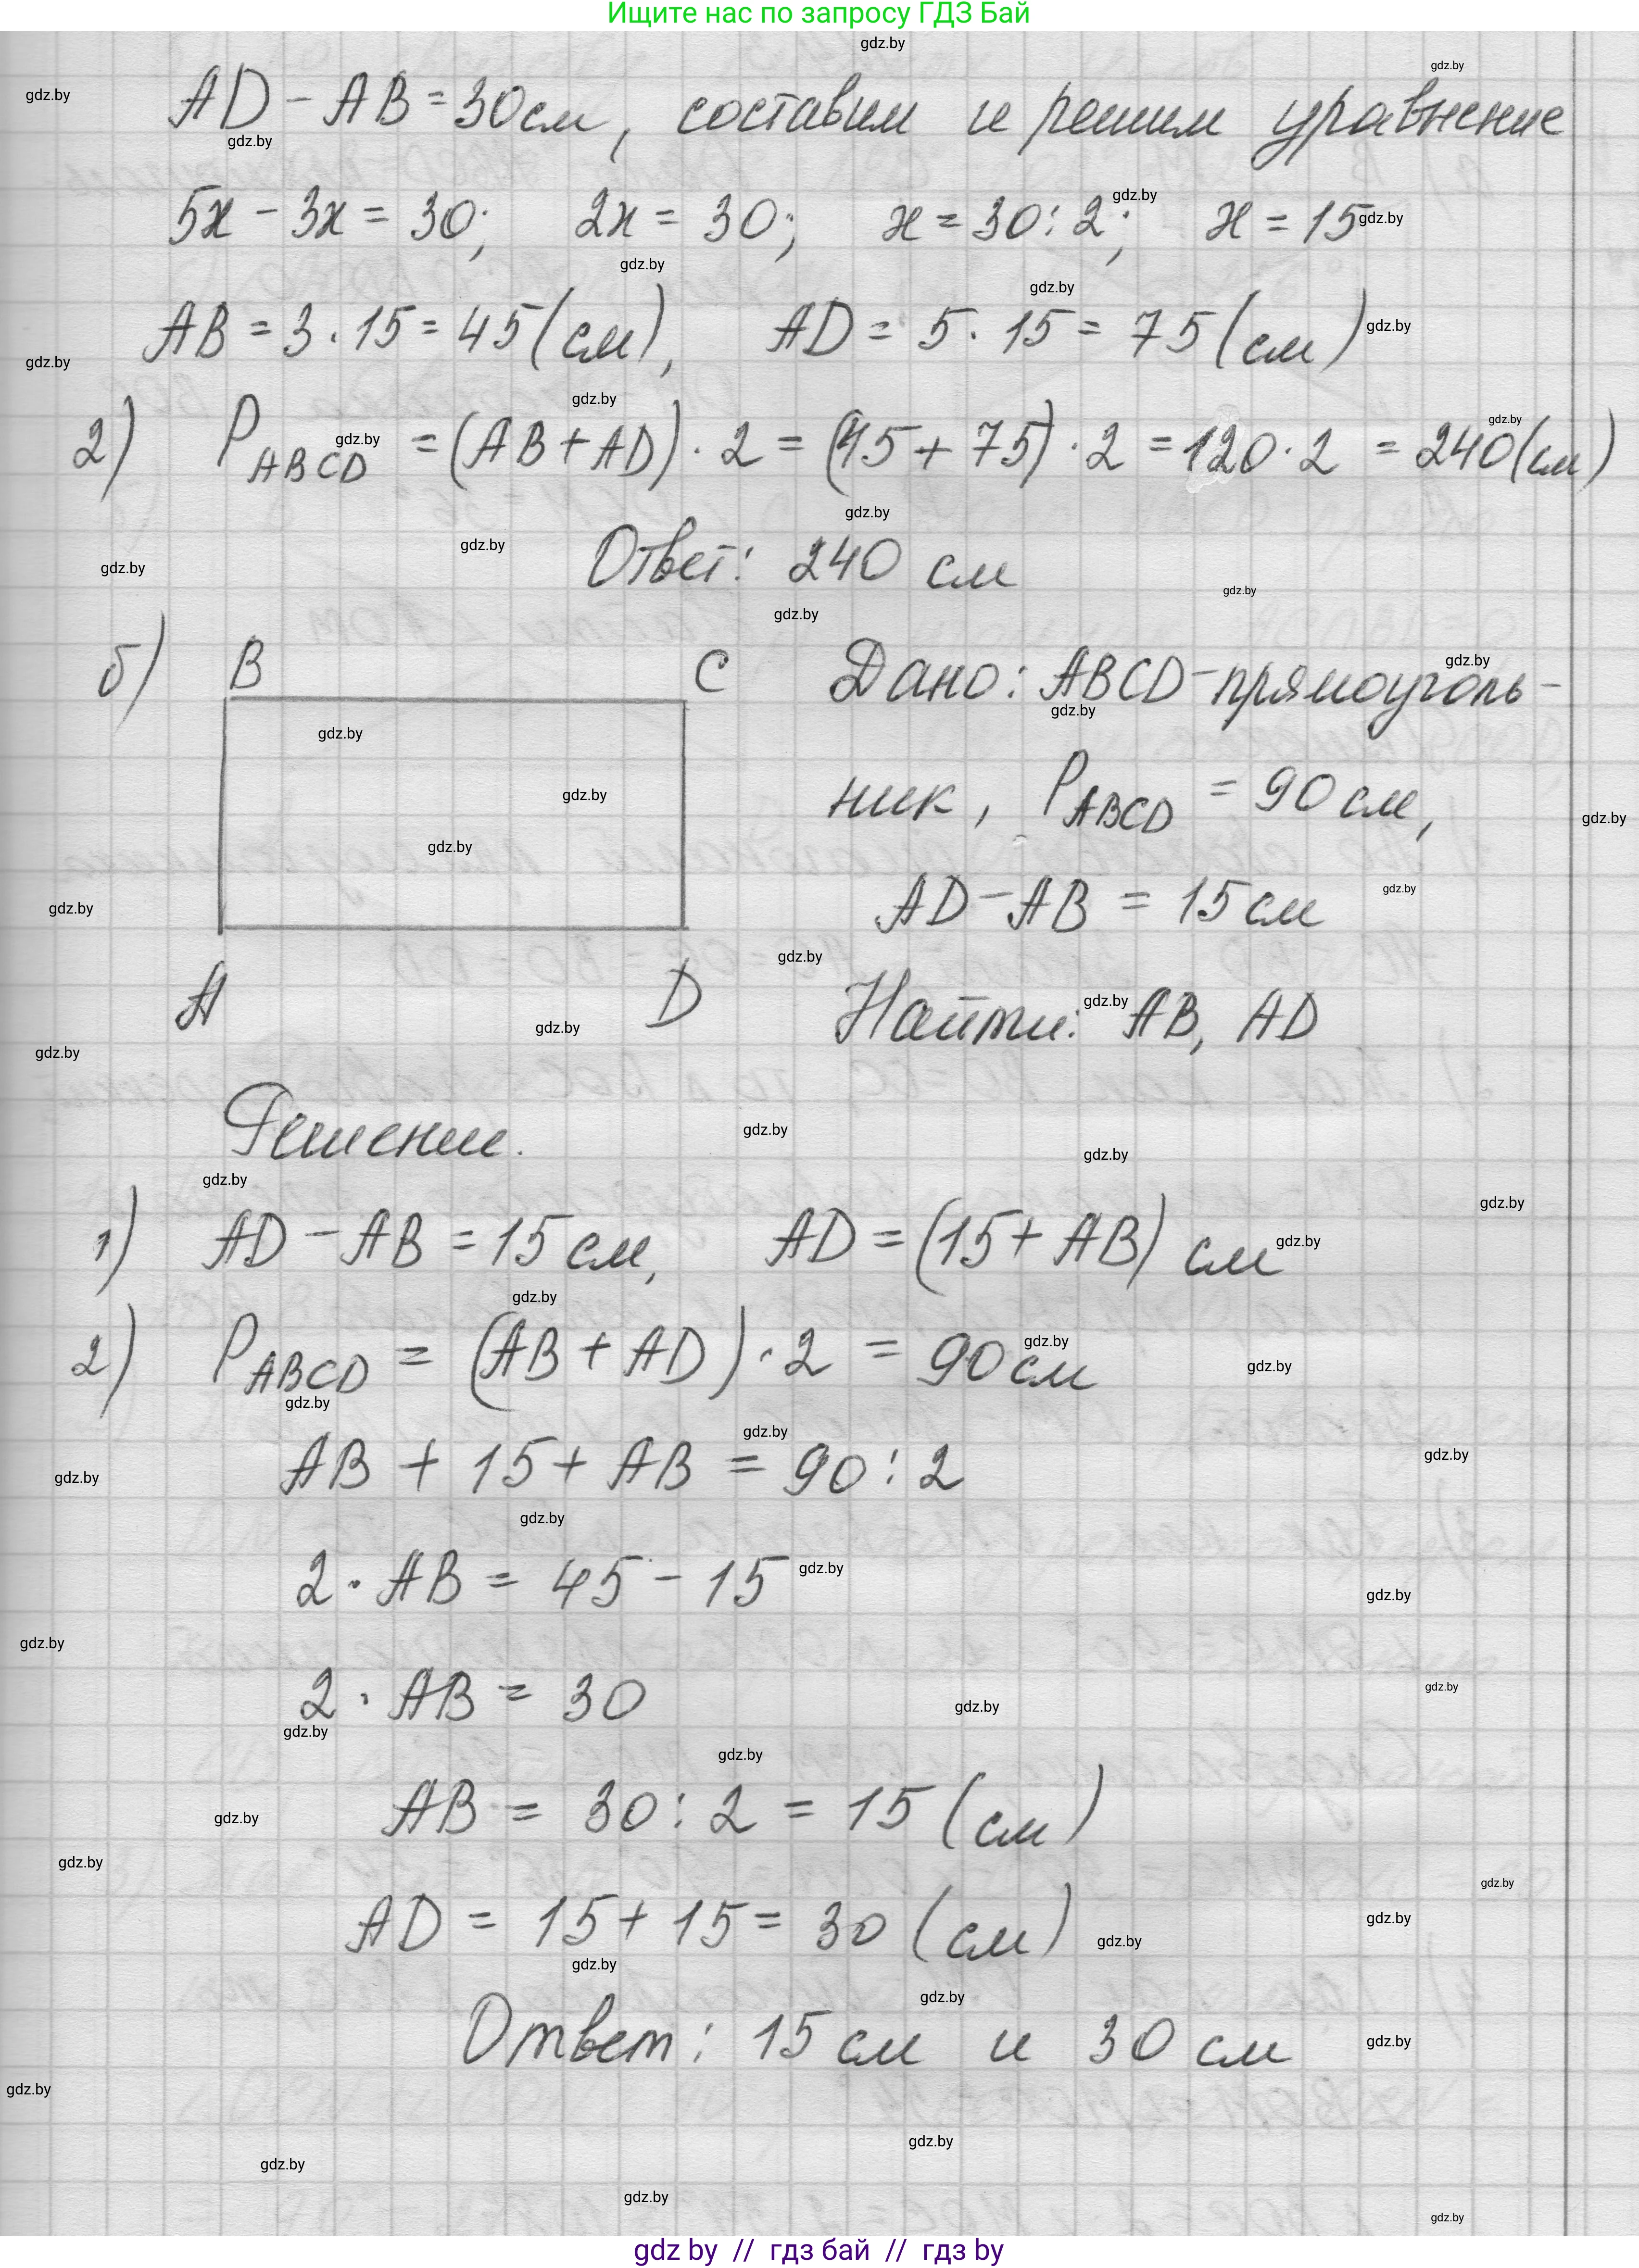 Ищите нас по запросу ГДЗ Бай
AD - AB = 30см, составим и решим уравнение
5x - 3x = 30; 2x = 30; x = 30:2; x = 15
AB = 3·15 = 45(см), AD = 5·15 = 75(см)
2) P ABCD = (AB + AD)·2 = (45 + 75)·2 = 120·2 = 240(см)
Ответ: 240 см
б) B C Дано: ABCD - прямоуголь-
ник, P ABCD = 90 см,
AD - AB = 15 см
A D Найти: AB, AD
Решение.
1) AD - AB = 15 см, AD = (15 + AB) см
2) P ABCD = (AB + AD)·2 = 90 см
AB + 15 + AB = 90:2
2·AB = 45 - 15
2·AB = 30
AB = 30:2 = 15 (см)
AD = 15 + 15 = 30 (см)
Ответ: 15 см и 30 см
gdz by // гдз бай // гдз by